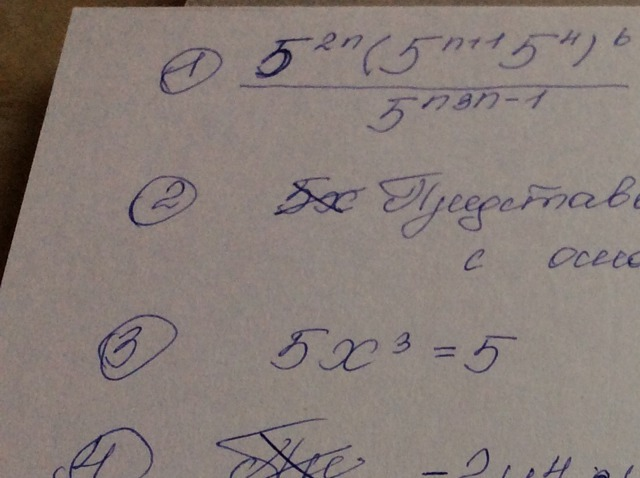 1 5^{2n}(5^{n+1}5^{4})^{6}
5^{n3n-1}
2 Представь
с осно
3 5x³ = 5
4